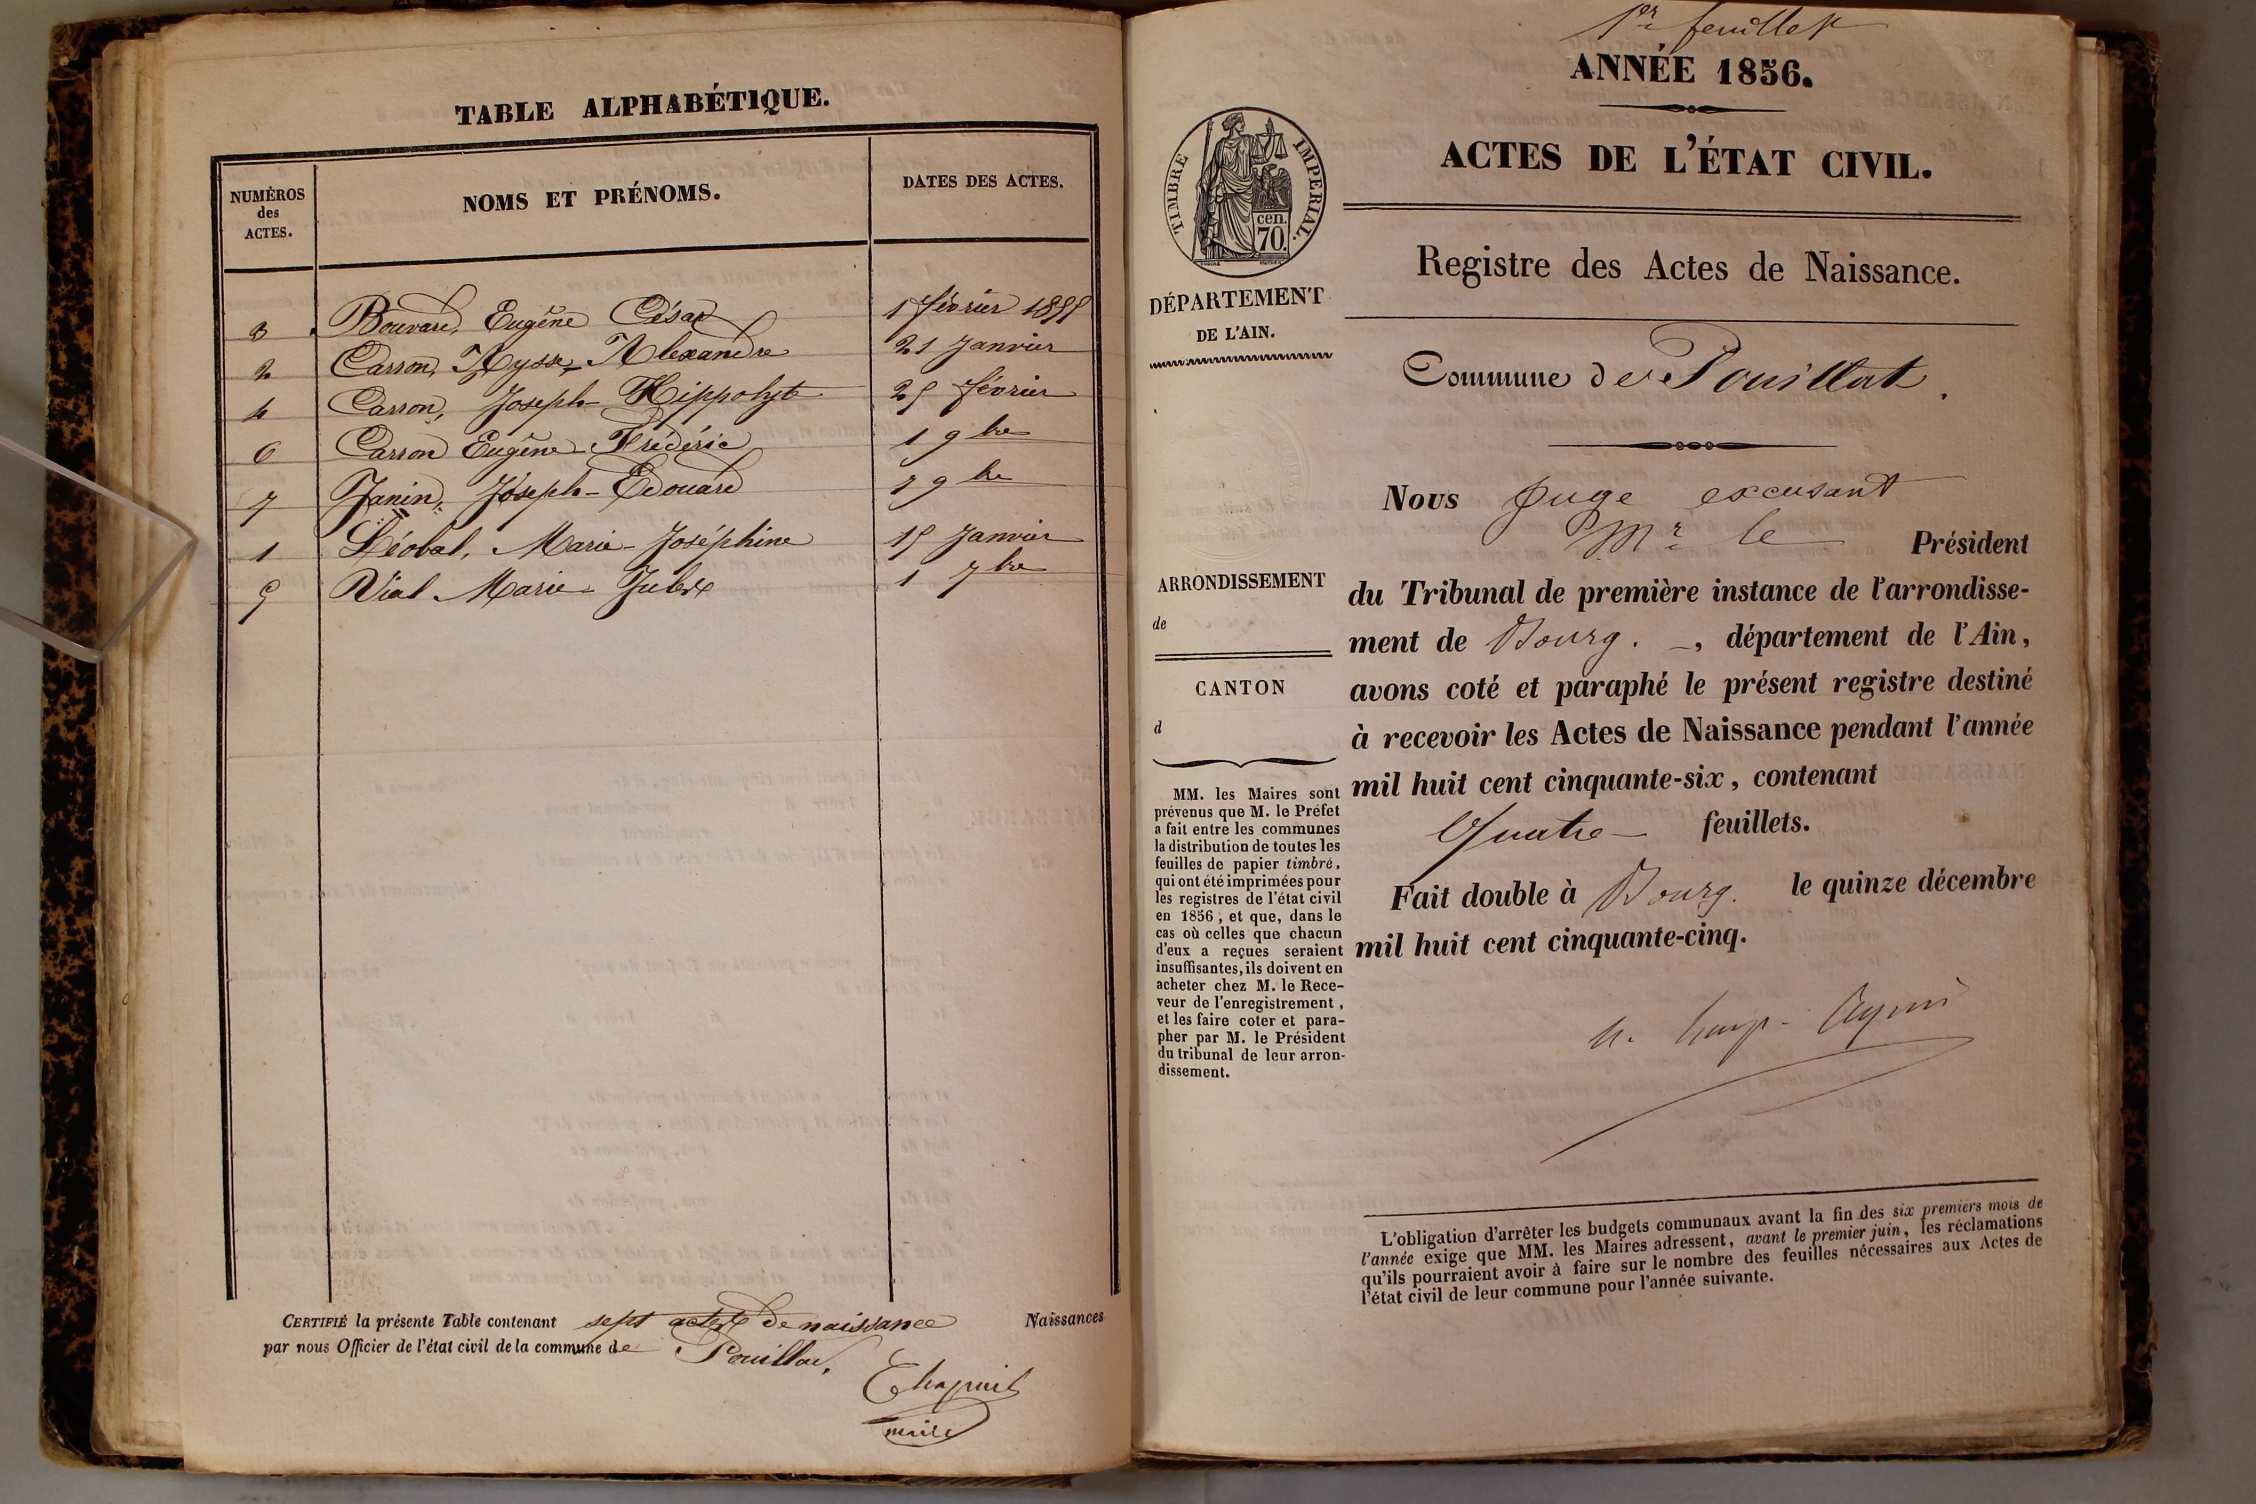 TABLE ALPHABÉTIQUE.
NUMÉROS
des
ACTES.
NOMS ET PRÉNOMS.
DATES DES ACTES.
3 Bouvard, Eugêne César 1 février 1855
2 Carron, Alexandre 21 Janvier
4 Carron, Joseph Hippolyte 25 février
6 Carron Eugêne Frédéric 1 9bre
7 Janin, Joseph-Edouard 9bre
1 Léobal, Marie-Joséphine 15 Janvier
5 Vial Marie- 1 7bre
CERTIFIÉ la présente Table contenant sept actes de naissance Naissances
par nous Officier de l'état civil de la commune de Pouillat,
Chapuit
maire
1er feuillet
ANNÉE 1856.
ACTES DE L'ÉTAT CIVIL.
TIMBRE IMPERIAL.
cen.
70.
DÉPARTEMENT
DE L'AIN.
Registre des Actes de Naissance.
Commune de Pouillat.
Nous Juge excusant
Mr le Président
du Tribunal de première instance de l'arrondisse-
ment de Bourg. , département de l'Ain,
avons coté et paraphé le présent registre destiné
à recevoir les Actes de Naissance pendant l'année
mil huit cent cinquante-six, contenant
Quatre feuillets.
Fait double à Bourg. le quinze décembre
mil huit cent cinquante-cinq.
ARRONDISSEMENT
de
CANTON
d
MM. les Maires sont
prévenus que M. le Préfet
a fait entre les communes
la distribution de toutes les
feuilles de papier timbré,
qui ont été imprimées pour
les registres de l'état civil
en 1856, et que, dans le
cas où celles que chacun
d'eux a reçues seraient
insuffisantes, ils doivent en
acheter chez M. le Rece-
veur de l'enregistrement,
et les faire coter et para-
pher par M. le Président
du tribunal de leur arron-
dissement.
L'obligation d'arrêter les budgets communaux avant la fin des six premiers mois de
l'année exige que MM. les Maires adressent, avant le premier juin, les réclamations
qu'ils pourraient avoir à faire sur le nombre des feuilles nécessaires aux Actes de
l'état civil de leur commune pour l'année suivante.